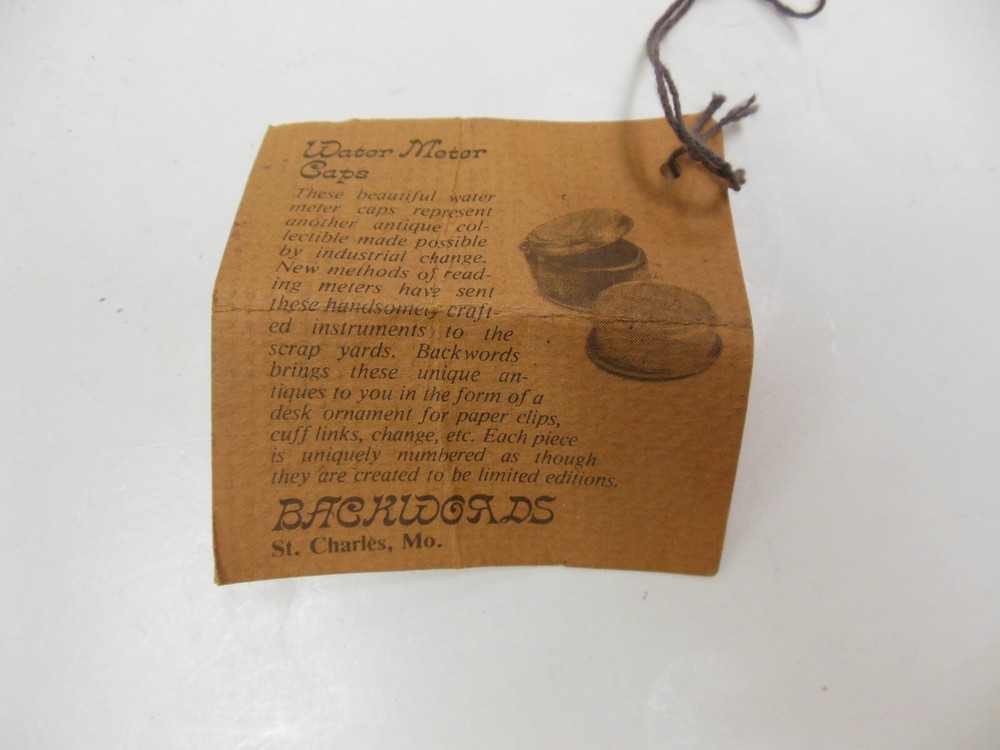 Water Meter
Caps
These beautiful water
meter caps represent
another antique col-
lectible made possible
by industrial change.
New methods of read-
ing meters have sent
these handsomely craft-
ed instruments to the
scrap yards. Backwords
brings these unique an-
tiques to you in the form of a
desk ornament for paper clips,
cuff links, change, etc. Each piece
is uniquely numbered as though
they are created to be limited editions.
BACKWORDS
St. Charles, Mo.